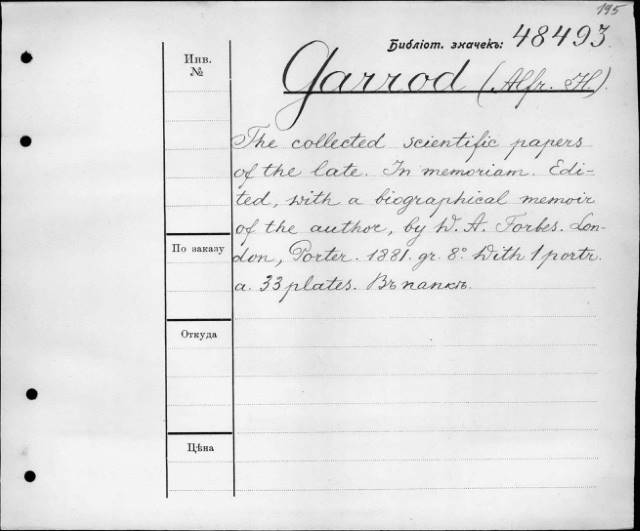 195
Библіот. значекъ: 48493
Инв.
№
Garrod (Alfr. H).
The collected scientific papers
of the late. In memoriam. Edi-
ted, with a biographical memoir
of the author, by W. A. Forbes. Lon-
По заказу
don, Porter. 1881. gr. 8° With 1 portr.
a. 33 plates. Въ папкѣ.
Откуда
Цѣна